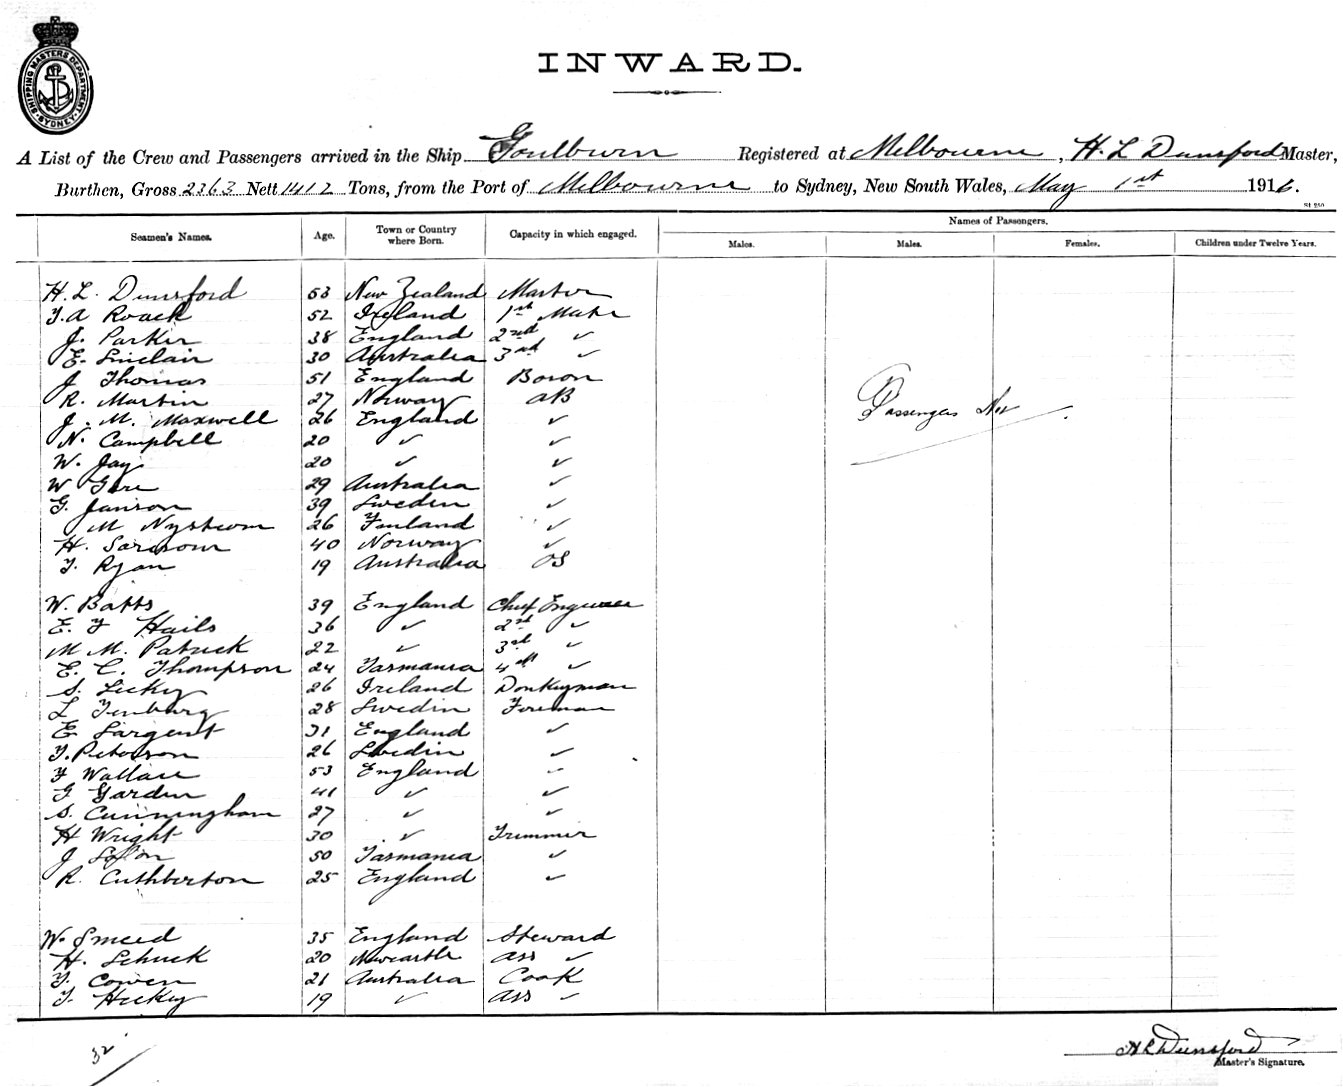 SHIPPING MASTERS DEPARTMENT SYDNEY
INWARD.
A List of the Crew and Passengers arrived in the Ship Goulburn Registered at Melbourne, H. L Dunsford Master,
Burthen, Gross 2363 Nett 1412 Tons, from the Port of Melbourne to Sydney, New South Wales, May 1st 1916.
Names of Passengers.
Seamen's Names. Age. Town or Country where Born. Capacity in which engaged. Males. Males. Females. Children under Twelve Years.
H. L. Dunsford 53 New Zealand Master
T. A Roach 52 Ireland 1st Mate
J. Parker 38 England 2nd ✓
E. Sinclair 30 Australia 3rd ✓
J Thomas 51 England Bosun
R. Martin 27 Norway AB
J. M. Maxwell 26 England ✓
N. Campbell 20 ✓ ✓
W. Jay 20 ✓ ✓
W 29 Australia ✓
G. Janson 39 Sweden ✓
M Nystrom 26 Finland ✓
H. 40 Norway ✓
T. Ryan 19 Australia OS
Passengers
W. Batts 39 England Chief Engineer
E. F Hails 36 ✓ 2nd ✓
M M. Patrick 22 ✓ 3rd ✓
E. C. Thompson 24 Tasmania 4th ✓
S. Licky 26 Ireland Donkeyman
L 28 Sweden Fireman
E Sargent 31 England ✓
T. Peterson 26 Sweden ✓
F Wallace 53 England ✓
G Garden 41 ✓ ✓
S. Cunningham 27 ✓ ✓
H Wright 30 ✓ Trimmer
J 50 Tasmania ✓
R. Cuthbertson 25 England ✓
W. Smeed 35 England Steward
H. Schuck 20 Newcastle Ass ✓
T. Cowen 21 Australia Cook
T. Hickey 19 ✓ Ass ✓
32
H L Dunsford
Master's Signature.